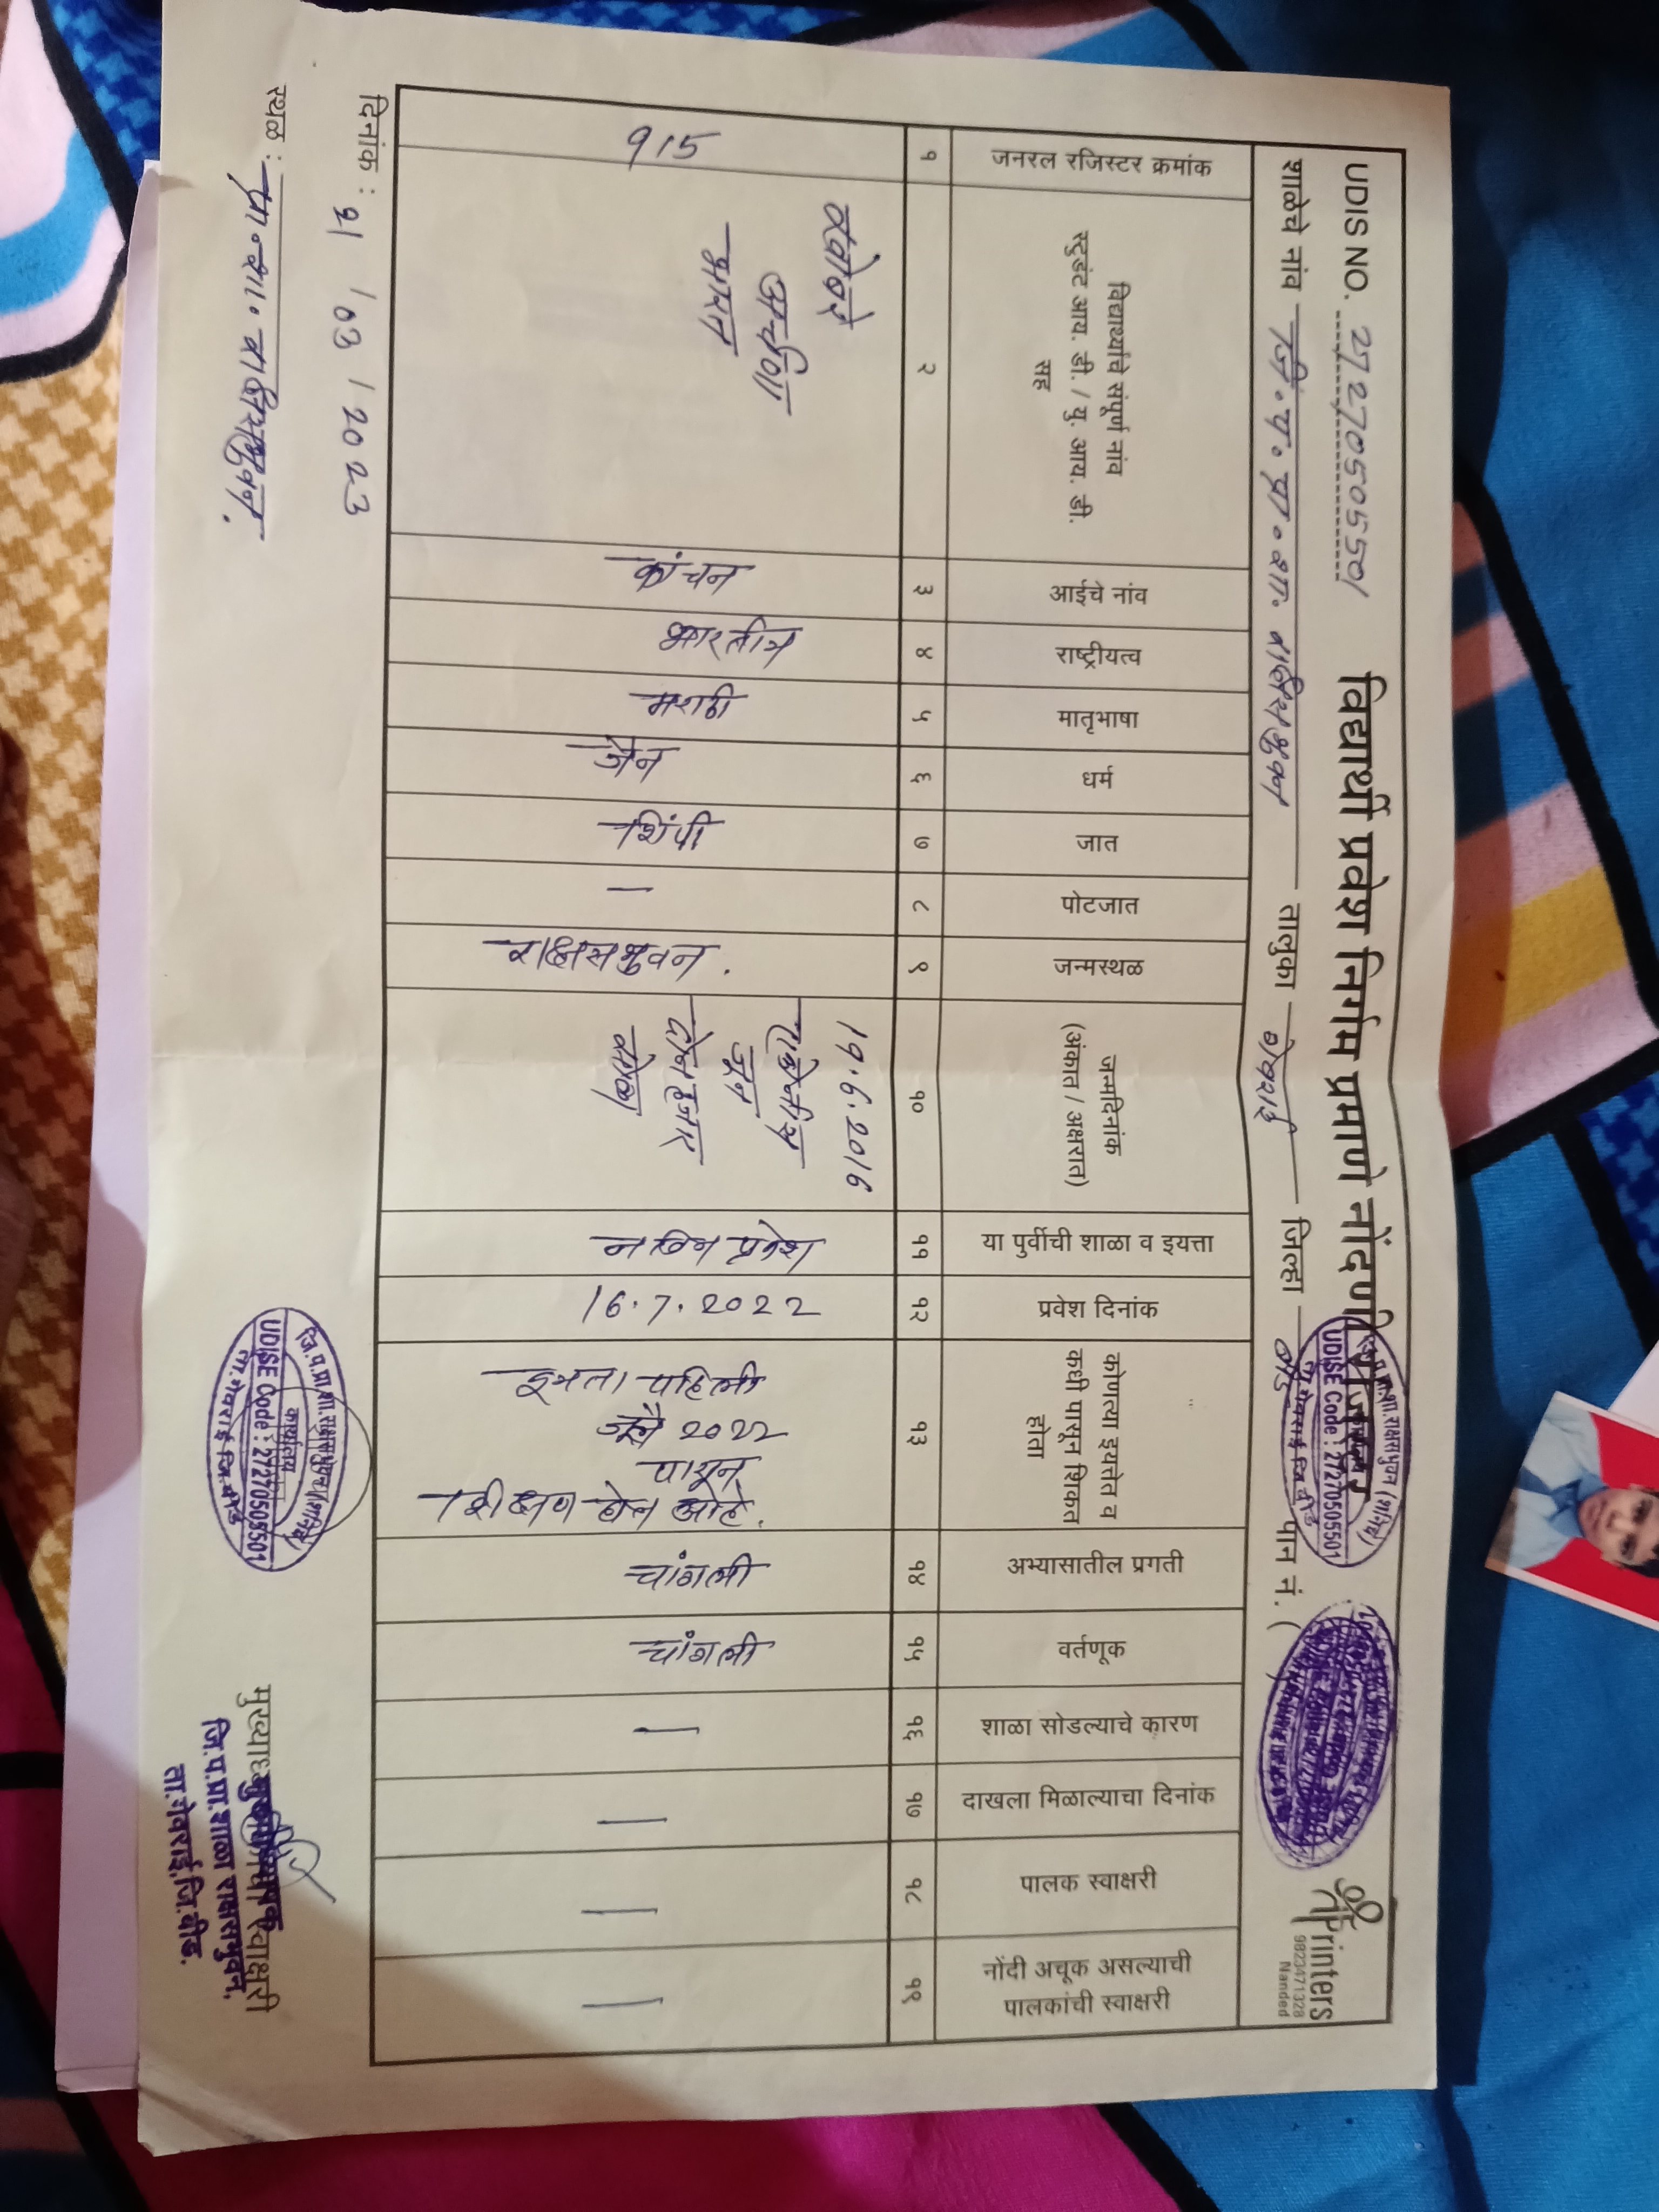 UDIS NO. 27270505501
विद्यार्थी प्रवेश निर्गम प्रमाणे नोंदणी
Printers
9823471328
Nanded
शाळेचे नांव जि. प. प्रा. शा. राक्षसभुवन तालुका गेवराई जिल्हा बीड पान नं. ( )
जि.प.प्रा.शा.राक्षसभुवन (शनिचे)
UDISE Code : 27270505501
ता.गेवराई जि.बीड
जनरल रजिस्टर क्रमांक
विद्यार्थ्याचे संपूर्ण नांव
स्टुडंट आय. डी. / यु. आय. डी.
सह
आईचे नांव
राष्ट्रीयत्व
मातृभाषा
धर्म
जात
पोटजात
जन्मस्थळ
जन्मदिनांक
(अंकात / अक्षरात)
या पुर्वीची शाळा व इयत्ता
प्रवेश दिनांक
कोणत्या इयत्तेत व
कधी पासून शिकत
होता
अभ्यासातील प्रगती
वर्तणूक
शाळा सोडल्याचे कारण
दाखला मिळाल्याचा दिनांक
पालक स्वाक्षरी
नोंदी अचूक असल्याची
पालकांची स्वाक्षरी
१ २ ३ ४ ५ ६ ७ ८ ९ १० ११ १२ १३ १४ १५ १६ १७ १८ १९
915
कांचन
भारतीय
मराठी
जैन
शिंपी
—
राक्षसभुवन.
19.6.2016
एकोणीस
जून
दोन हजार
सोळा
नविन प्रवेश
16.7.2022
इयत्ता पहिली
जूलै 2022
पासून
शिक्षण घेत आहे.
चांगली
चांगली
—
—
—
—
दिनांक : 21 / 03 / 2023
स्थळ : प्रा. शा. राक्षसभुवन.
जि.प.प्रा.शा.राक्षसभुवन (शनिचे)
कार्यालय
UDISE Code : 27270505501
ता.गेवराई जि.बीड
स्वाक्षरी
जि.प.प्रा.शाळा राक्षसभुवन.
ता.गेवराई,जि.बीड.